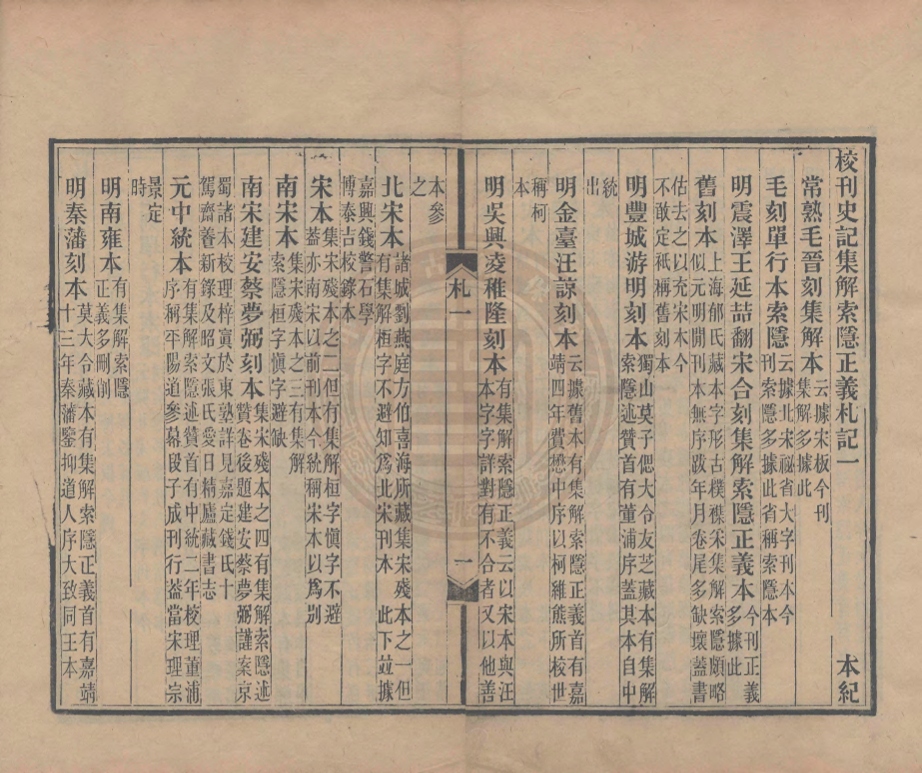 校刊史記集解索隱正義札記一 本紀
常熟毛晉刻集解本云據宋板今刊集解多據此
毛刻單行本索隱云據北宋祕省大字刊本今刊索隱多據此省稱索隱本
明震澤王延喆翻宋合刻集解索隱正義本今刊正義多據此
舊刻本上海郁氏藏本字形古樸襍采集解索隱頗略似元明閒刊本無序跋年月卷尾多缺壞蓋書
估去之以充宋本今不敢定祇稱舊刻本
明豐城游明刻本獨山莫子偲大令友芝藏本有集解索隱述贊首有董浦序蓋其本自中
統出
明金臺汪諒刻本云據舊本有集解索隱正義首有嘉靖四年費懋中序以柯維熊所校世
稱柯本
明吳興凌稚隆刻本有集解索隱正義云以宋本與汪本字字詳對有不合者又以他善
札一 一
本參之
北宋本諸城劉燕庭方伯喜海所藏集宋殘本之一但有集解桓字不避知爲北宋刊本 此下竝據
嘉興錢警石學博泰吉校錄本
宋本集宋殘本之二但有集解桓字愼字不避蓋亦南宋以前刊本今統稱宋本以爲別
南宋本集宋殘本之三有集解索隱桓字愼字避缺
南宋建安蔡夢弼刻本集宋殘本之四有集解索隱述贊卷後題建安蔡夢弼謹案京
蜀諸本校理梓寘於東塾詳見嘉定錢氏十駕齋養新錄及昭文張氏愛日精廬藏書志
元中統本有集解索隱述贊首有中統二年校理董浦序稱平陽道參幕段子成刊行蓋當宋理宗
景定時
明南雍本有集解索隱正義多刪削
明秦藩刻本莫大令藏本有集解索隱正義首有嘉靖十三年秦藩鑒抑道人序大致同王本